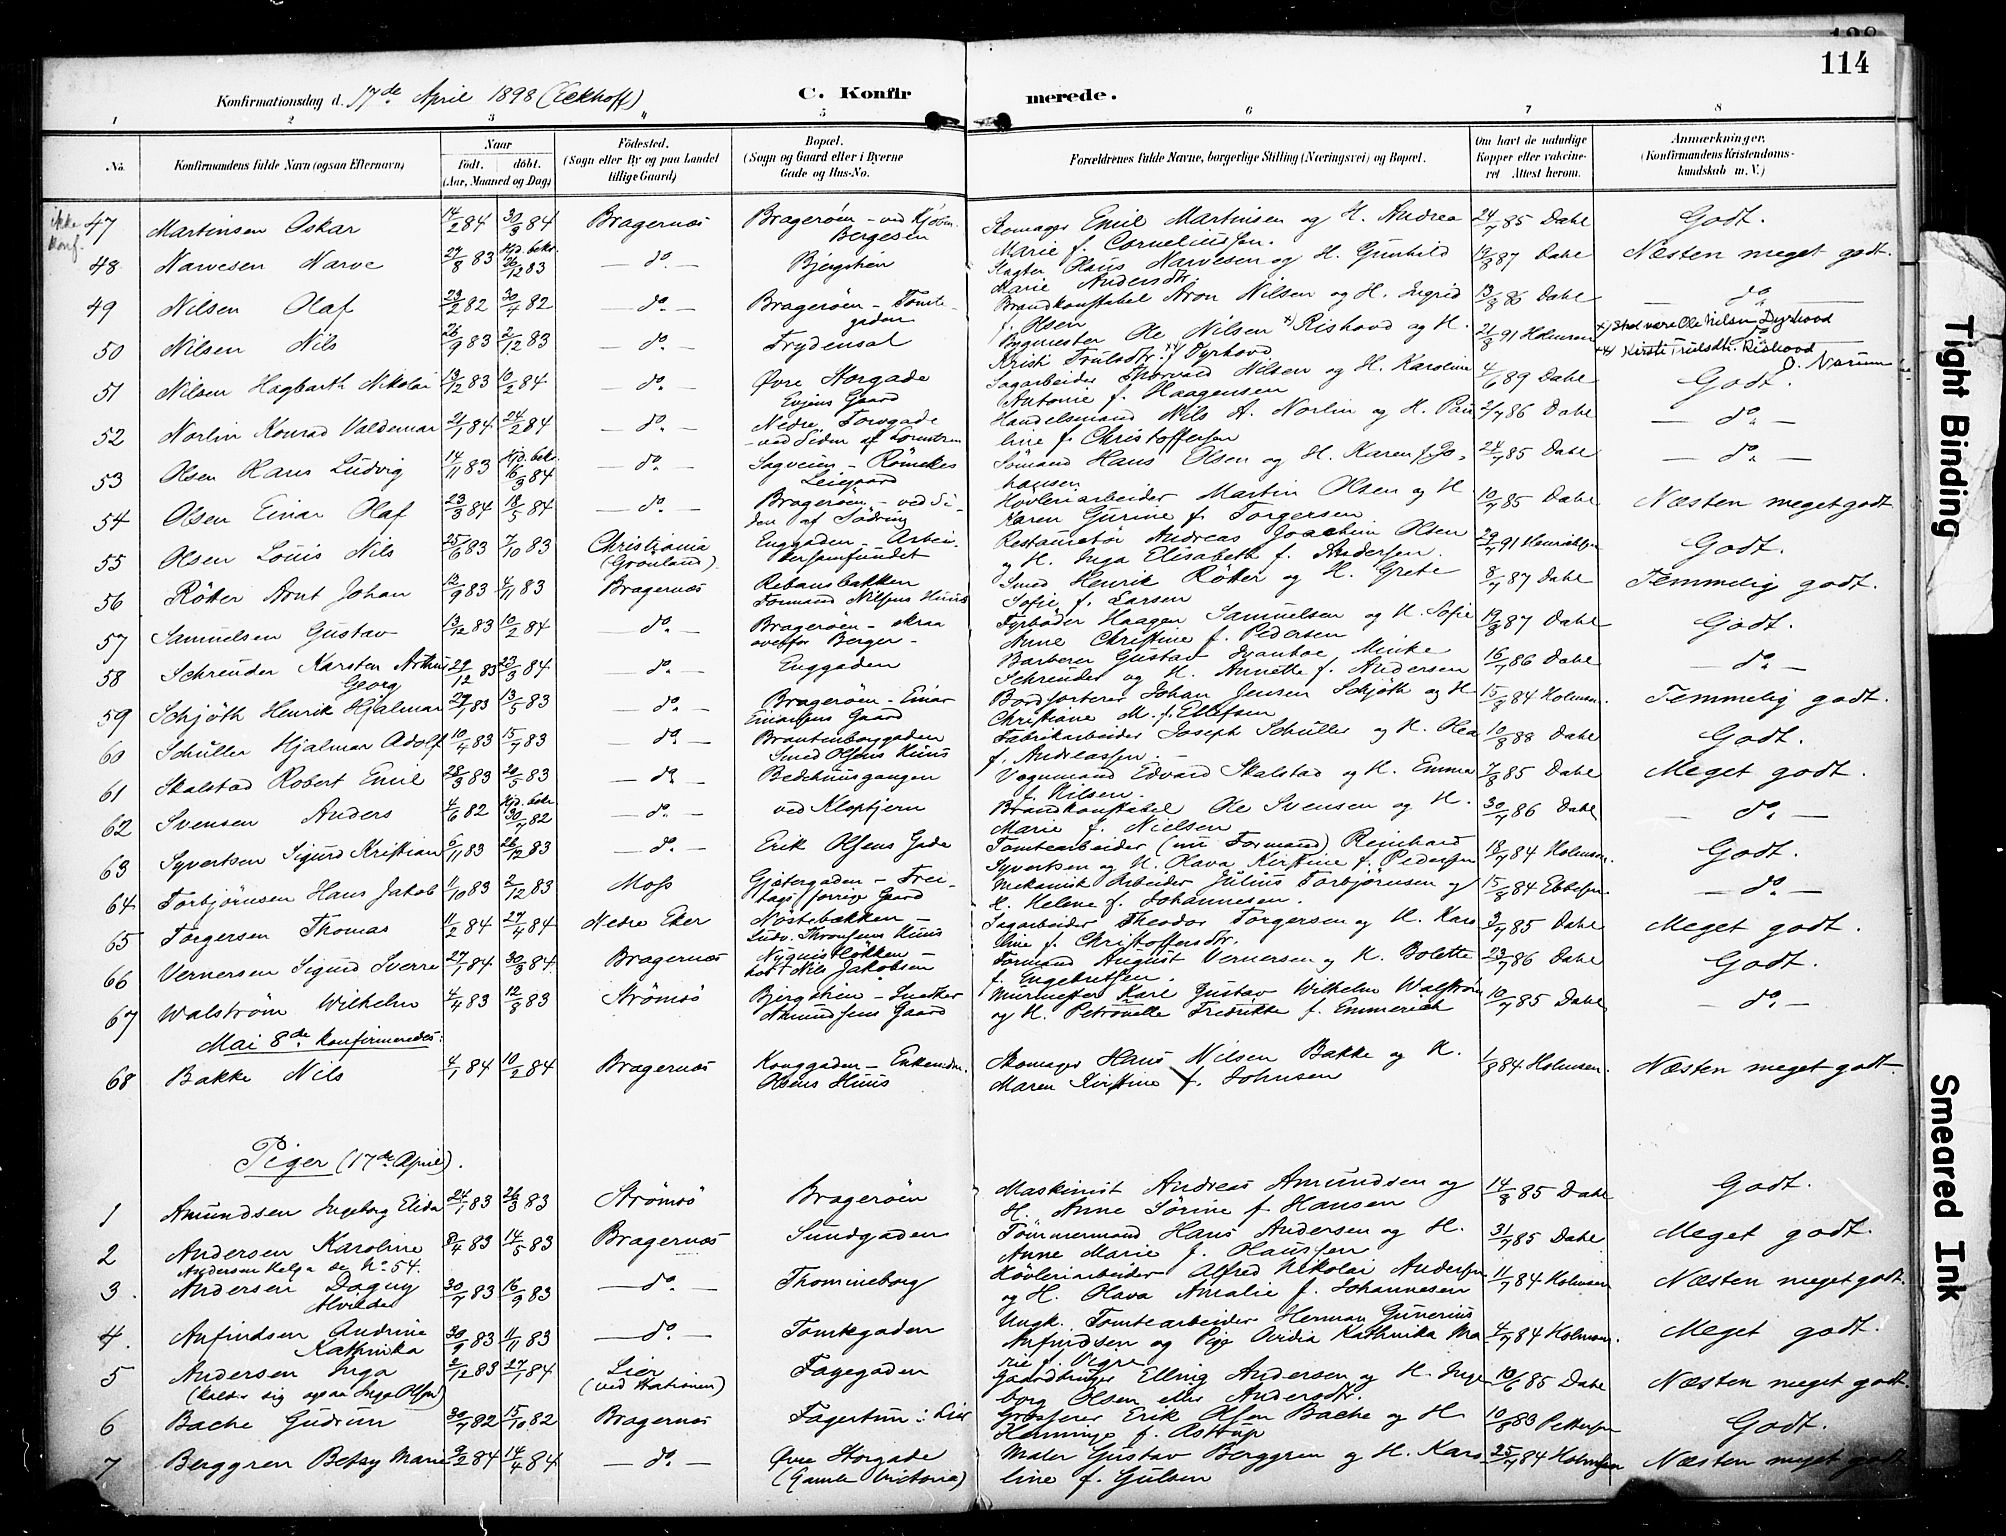 114
Konfirmationsdag d. 17de April 1898 (Eckhoff)
C. Konfirmerede.
1 2 3 4 5 6 7 8
No. Konfirmandens fulde Navn (ogsaa Efternavn) Naar födt. döbt. (Aar, Maaned og Dag) Födested. (Sogn eller By og paa Landet tillige Gaard) Bopæl. (Sogn og Gaard eller i Byerne Gade og Hus-No. Forældrenes fulde Navne, borgerlige Stilling (Næringsvei) og Bopæl. Om havt de naturlige Kopper eller vakcineret Attest herom. Anmærkninger. (Konfirmandens Kristendomskundskab m. V.)
ikke konf.
47 Martinsen Oskar 14/2 84 30/3 84 Bragernæs Bragerøen - ved Kjøbm. Bergesen Skomager Emil Martinsen og H. Andrea Marie f. Corneliussen. 24/7 85 Dahl Godt.
48 Narvesen Narve 27/8 83 Kjd. bekr. 26/12 83 do. Bjergstien Hans Narvesen og H. Gunhild Marie Andersdtr. 19/8 87 Dahl Næsten meget godt.
49 Nilsen Olaf 23/2 82 30/4 82 do. Bragerøen - Tomtegaden Brandkonstabel Aron Nilsen og H. Ingrid f. Olsen 13/8 86 Dahl do
50 Nilsen Nils 26/9 83 2/12 83 do. Frydensal Bygmester Ole Nilsen x) Rishovd og H. Kristi Trulsdtr. xx) Dyrhovd 21/8 91 Holmsen x) Skal være Ole Nilsen Dyrhovd xx) Kirsti Trulsdtr. Rishovd
51 Nilsen Hagbarth Nikolai 13/12 83 10/2 84 do. Øvre Storgade Evjens Gaard Sagarbeider Thorvald Nilsen og H. Karoline Antonie f. Haagensen 4/6 89 Dahl Godt.
52 Norlin Konrad Valdemar 21/1 84 24/2 84 do. Nedre Torvgade - ved Siden af Handelsmand Nils A. Norlin og H. Pauline f. Christoffersen 2/7 86 Dahl do.
53 Olsen Hans Ludvig 14/11 83 Kjd. bekr. 16/3 84 do. Sagveien - Römckes Leiegaard Sømand Hans Olsen og H. Karen f. Johansen 24/7 85 Dahl do.
54 Olsen Einar Olaf 23/3 84 18/5 84 do. Bragerøen - ved Siden af Södring Høvleriarbeider Martin Olsen og H. Karen Gurine f. Torgersen 10/7 85 Dahl Næsten meget godt
55 Olsen Louis Nils 25/6 83 7/10 83 Christiania (Grønland) Enggaden - Arbeidersamfundet Restauratør Andreas Joachim Olsen og H. Inga Elisabeth f. Andersen. 29/7 91 Godt.
56 Rötter Arnt Johan 12/9 83 4/11 83 Bragernæs Rebansbakken Formand Nilsens Huus Smed Henrik Rötter og H. Grete Sofie f. Larsen 8/7 87 Dahl Temmelig godt.
57 Samuelsen Gustav 13/12 83 10/2 84 do. Bragerøen - skraa overfor Berger - Fyrbøder Haagen Samuelsen og H. Sofie Anne Christine f. Pedersen 19/8 87 Dahl Godt.
58 Schreuder Karsten Arthur Georg 29/12 83 23/3 84 do. Enggaden Barberer Gustav Ivanhoe Minke Schreuder og H. Annette f. Andersen 16/7 86 Dahl do.
59 Schjöth Henrik Hjalmar 29/1 83 13/5 83 do. Bragerøen - Einar Einarsens Gaard Bordsorterer Johan Jensen Schjöth og H. Christiane M. f. Ellefsen 15/8 84 Holmsen. Temmelig godt.
60 Schüller Hjalmar Adolf 10/4 83 15/7 83 do. Brantenborggaden Smed Olsens Huus Fabrikarbeider Joseph Schüller og H. Olea f. Andreassen 10/8 88 Dahl Godt.
61 Skalstad Robert Emil 28/3 83 20/5 83 do. Bedehuusgangen Vognmand Edvard Skalstad og H. Emma f. Nilsen. 7/8 85 Dahl Meget godt.
62 Svensen Anders 4/6 82 Kjd. bekr. 30/7 82 do. ved Kloptjern Brandkonstabel Ole Svensen og H. Marie f. Nielsen 30/7 86 Dahl do.
63 Syvertsen Sigurd Kristian 6/11 83 26/12 83 do. Erik Olsens Gade Tomtearbeider (nu Formand) Reinhard Syvertsen og H. Olava Kirstine f. Pedersen 18/7 84 Holmsen. Godt.
64 Torbjørnsen Hans Jakob 1/10 83 2/12 83 Moss Gjætergaden - Freitags forrige Gaard Mekanisk Arbeider Julius Torbjørnsen og H. Helene f. Johannesen. 15/8 84 do.
65 Torgersen Thomas 11/2 84 27/4 84 Nedre Eker Nöstebækken - Ludv. Thronsens Huus Sagarbeider Theodor Torgersen og H. Karoline f. Christoffersdtr. 3/7 85 Dahl Meget godt.
66 Vernersen Sigurd Sverre 27/1 84 30/3 84 Bragernæs Nyquistløkken - hos Nils Jakobsen Formand August Vernersen og H. Bolette f. Engebretsen. 23/7 86 Dahl Godt.
67 Walström Wilhelm 4/4 83 12/8 83 Strömsö Bjergstien - Snedker Amundsens Gaard Murmester Karl Gustav Wilhelm Walström og H. Petronelle Fredrikke f. Emmerich 10/7 85 Dahl do.
Mai 8de konfirmeredes:
68 Bakke Nils 4/1 84 10/2 84 Bragernæs Konggaden - Enkemdm. Olsens Huus Skomager Hans Nilsen Bakke og H. Maren Kirstine f. Johnsen 1/8 84 Holmsen. Næsten meget godt.
Piger (17de April).
1 Amundsen Ingeborg Elida 24/1 83 26/3 83 Strömsö Bragerøen Maskinist Andreas Amundsen og H. Anne Sörine f. Hansen 14/8 85 Dahl Godt.
2 Andersen Karoline 8/4 83 14/5 83 Bragernæs Sundgaden Tömmermand Hans Andersen og H. Anne Marie f. Hanssen 31/7 85 Dahl Meget godt.
Andersen Helga se No 54.
3 Andersen Dagny Alvilda 30/7 83 16/9 83 do. Thomineborg Høvleriarbeider Alfred Nikolai Andersen og H. Olava Amalie f. Johannesen 11/7 84 Holmsen Næsten meget godt.
4. Anfindsen Andrine Kathinka 30/9 83 11/11 83 do. Tomtegaden Ungk. Tomtearbeider Herman Gunerius Anfindsen og Pige Ovidia Kathinka Marie f. Vegre 4/7 84 Holmsen. Meget godt.
5 Andersen Inga (kalder sig ogsaa Inga Olsen) 2/12 83 27/1 84 Lier (ved Stationen) Fagegaden Gaardbruger Elling Andersen og H. Ingeborg Olsen eller Andersdtr. 10/6 85 Dahl Næsten meget godt.
6 Bache Gudrun 30/7 82 15/10 82 Bragernæs Fagertun i Lier Grosserer Erik Olsen Bache og H. Henninge f. Astrup 10/8 83 Pettersen Godt.
7 Berggren Betsy Marie 9/2 84 14/4 84 do. Øvre Storgade (Gamle Victoria) Maler Gustav Berggren og H. Karoline f. Gulsen 25/7 84 Holmsen Næsten meget godt
Tight Binding
Smeared Ink